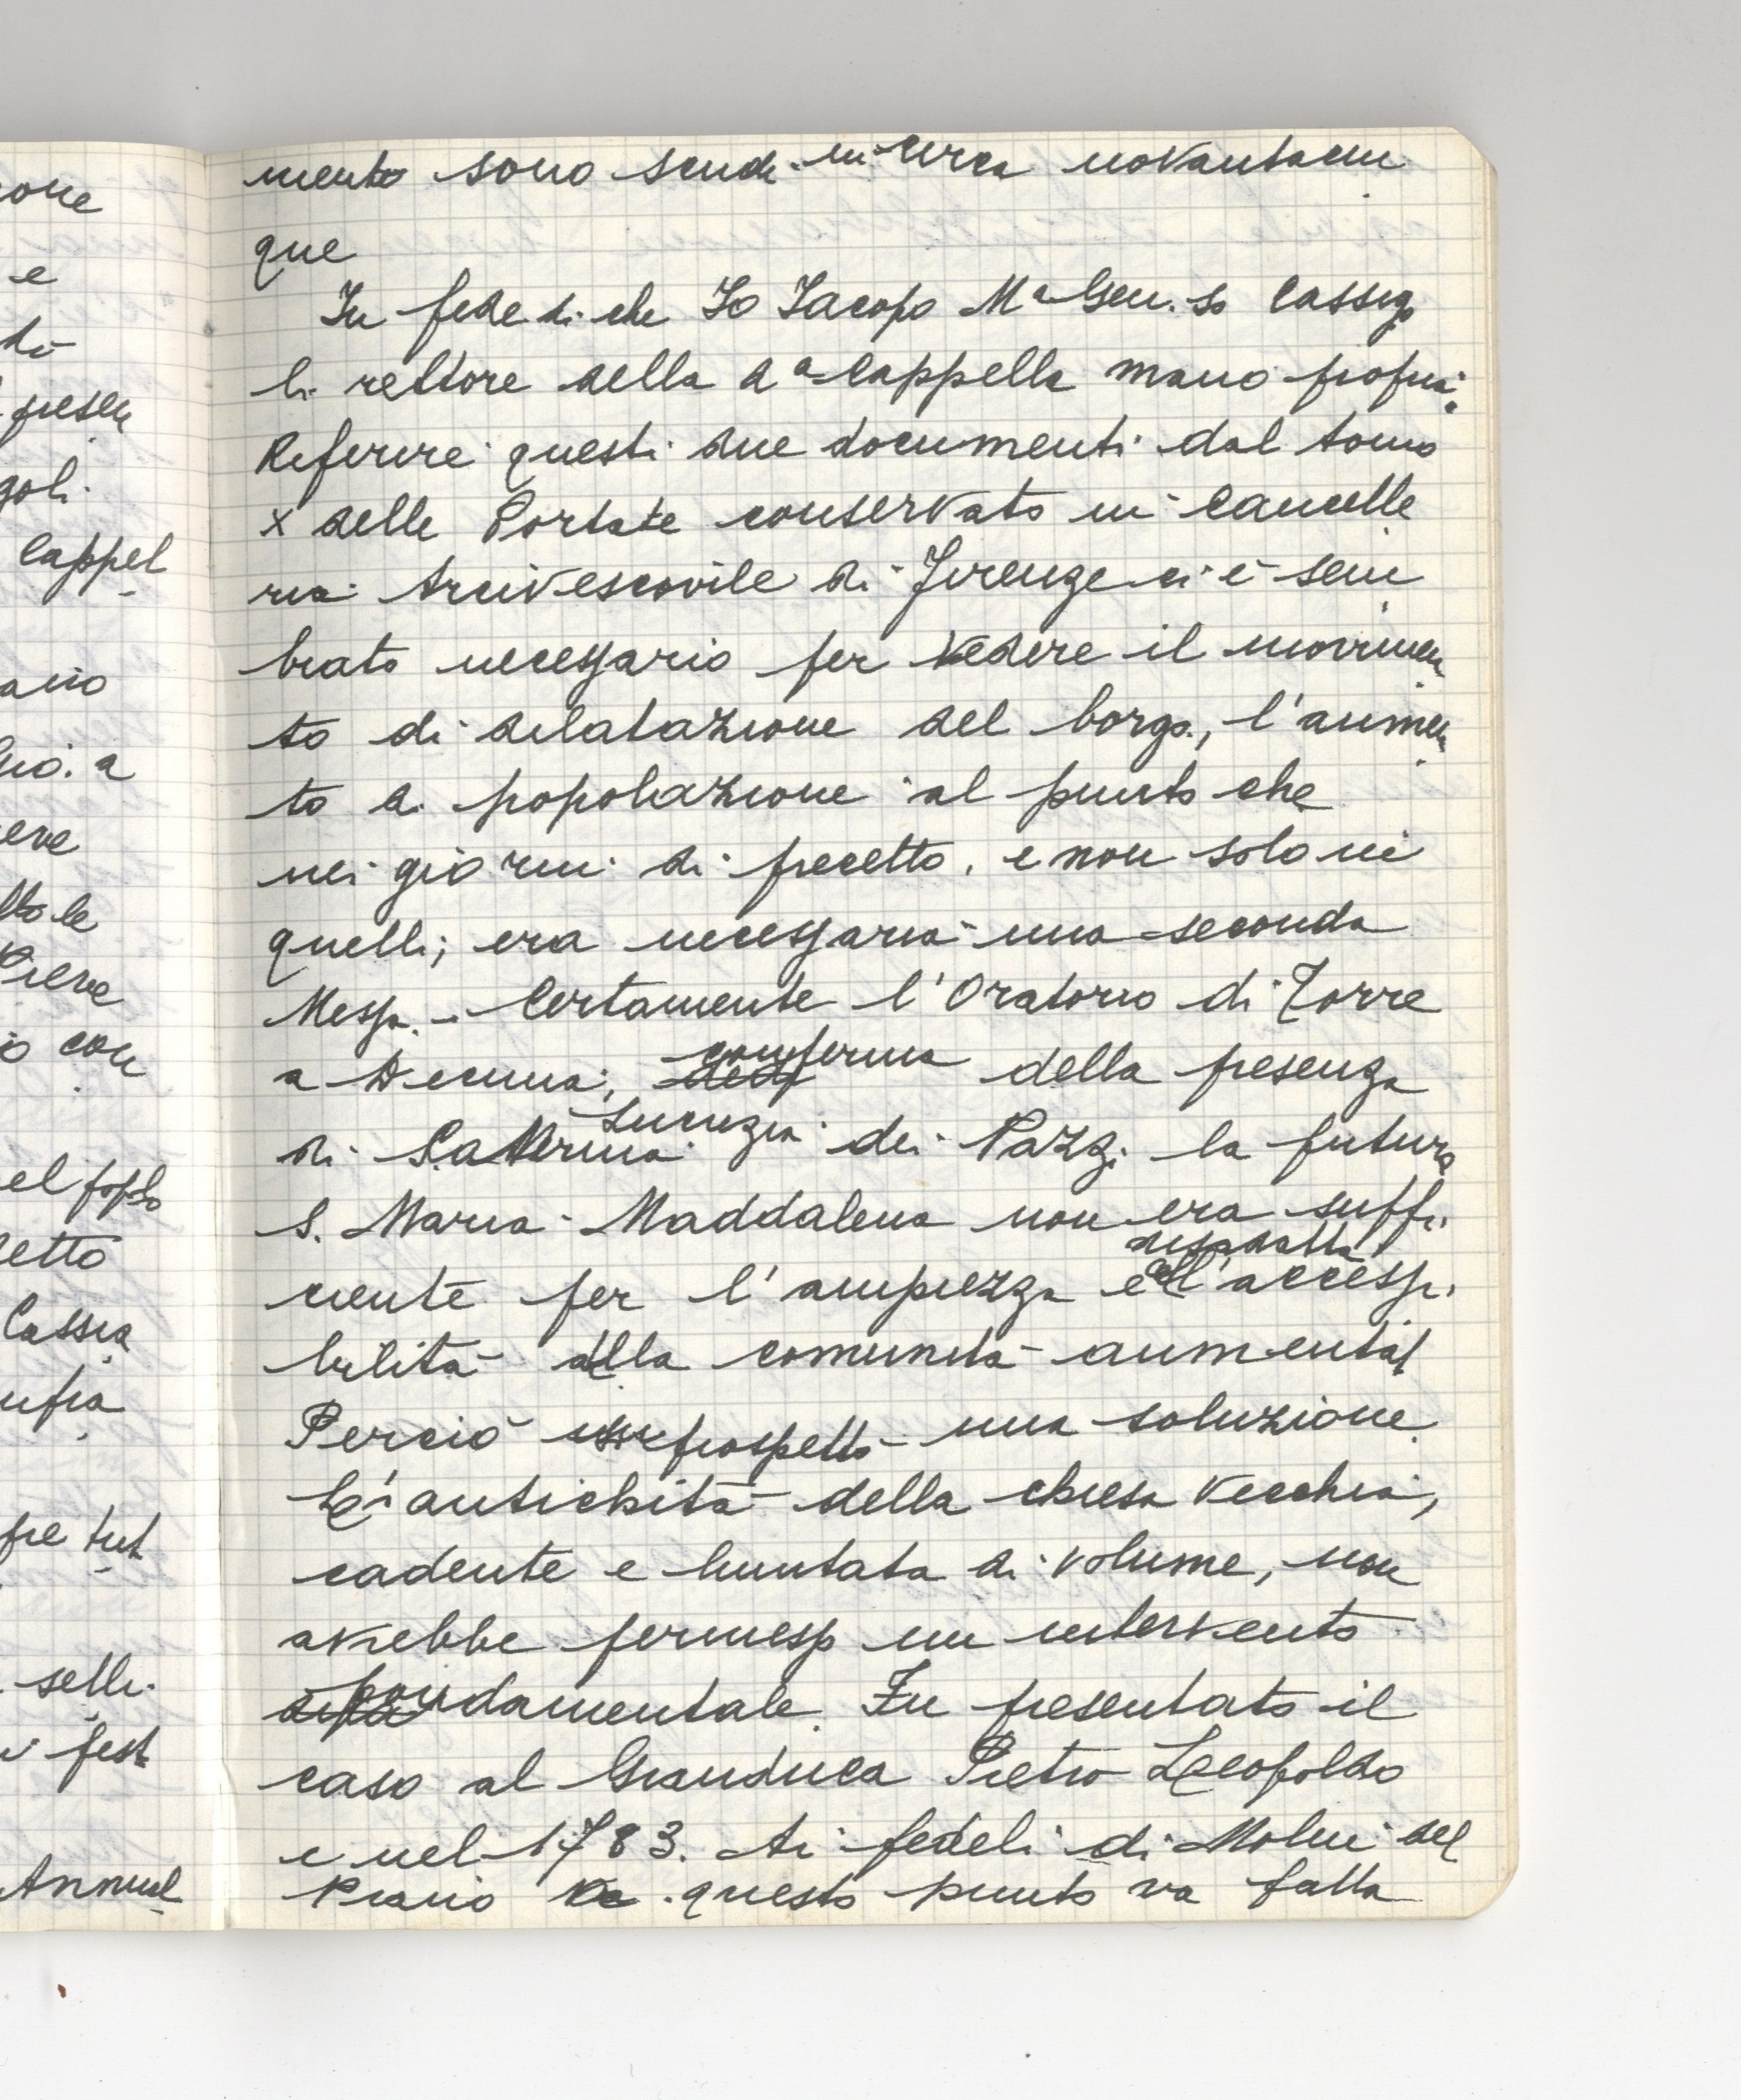 mento sono scudi in circa novantacin
que
In fede di che Io Jacopo Mª Gen. so Cassig
li rettore della dª Cappella mano propria.
Riferire questi due documenti dal tomo
X delle Portate conservato in Cancelle
ria Arcivescovile di Firenze ci è sem
brato necessario per vedere il movimen
to di dilatazione del borgo, l'aumen
to di popolazione al punto che
nei giorni di precetto, e non solo in
quelli, era necessaria una seconda
Messa. - Certamente l'Oratorio di Torre
a Decima, conferma della presenza
di Caterina Lucrezia dei Pazzi la futura
S. Maria Maddalena non era suffi
ciente per l'ampiezza e disadatta all'accessi
bilità alla comunità aumentat
Perciò prospettò una soluzione.
L'antichità della chiesa vecchia,
cadente e limitata di volume, non
avrebbe permesso un intervento
fondamentale. Fu presentato il
caso al Granduca Pietro Leopoldo
e nel 1783. Ai fedeli di Molin del
Piano a questo punto va fatta
one
e
di
presen
goli.
Cappel
ano
Gio. a
eve
tto le
Pieve
io con
el poplo
etto
Cassia
pre tut
selli.
i fest
Annual